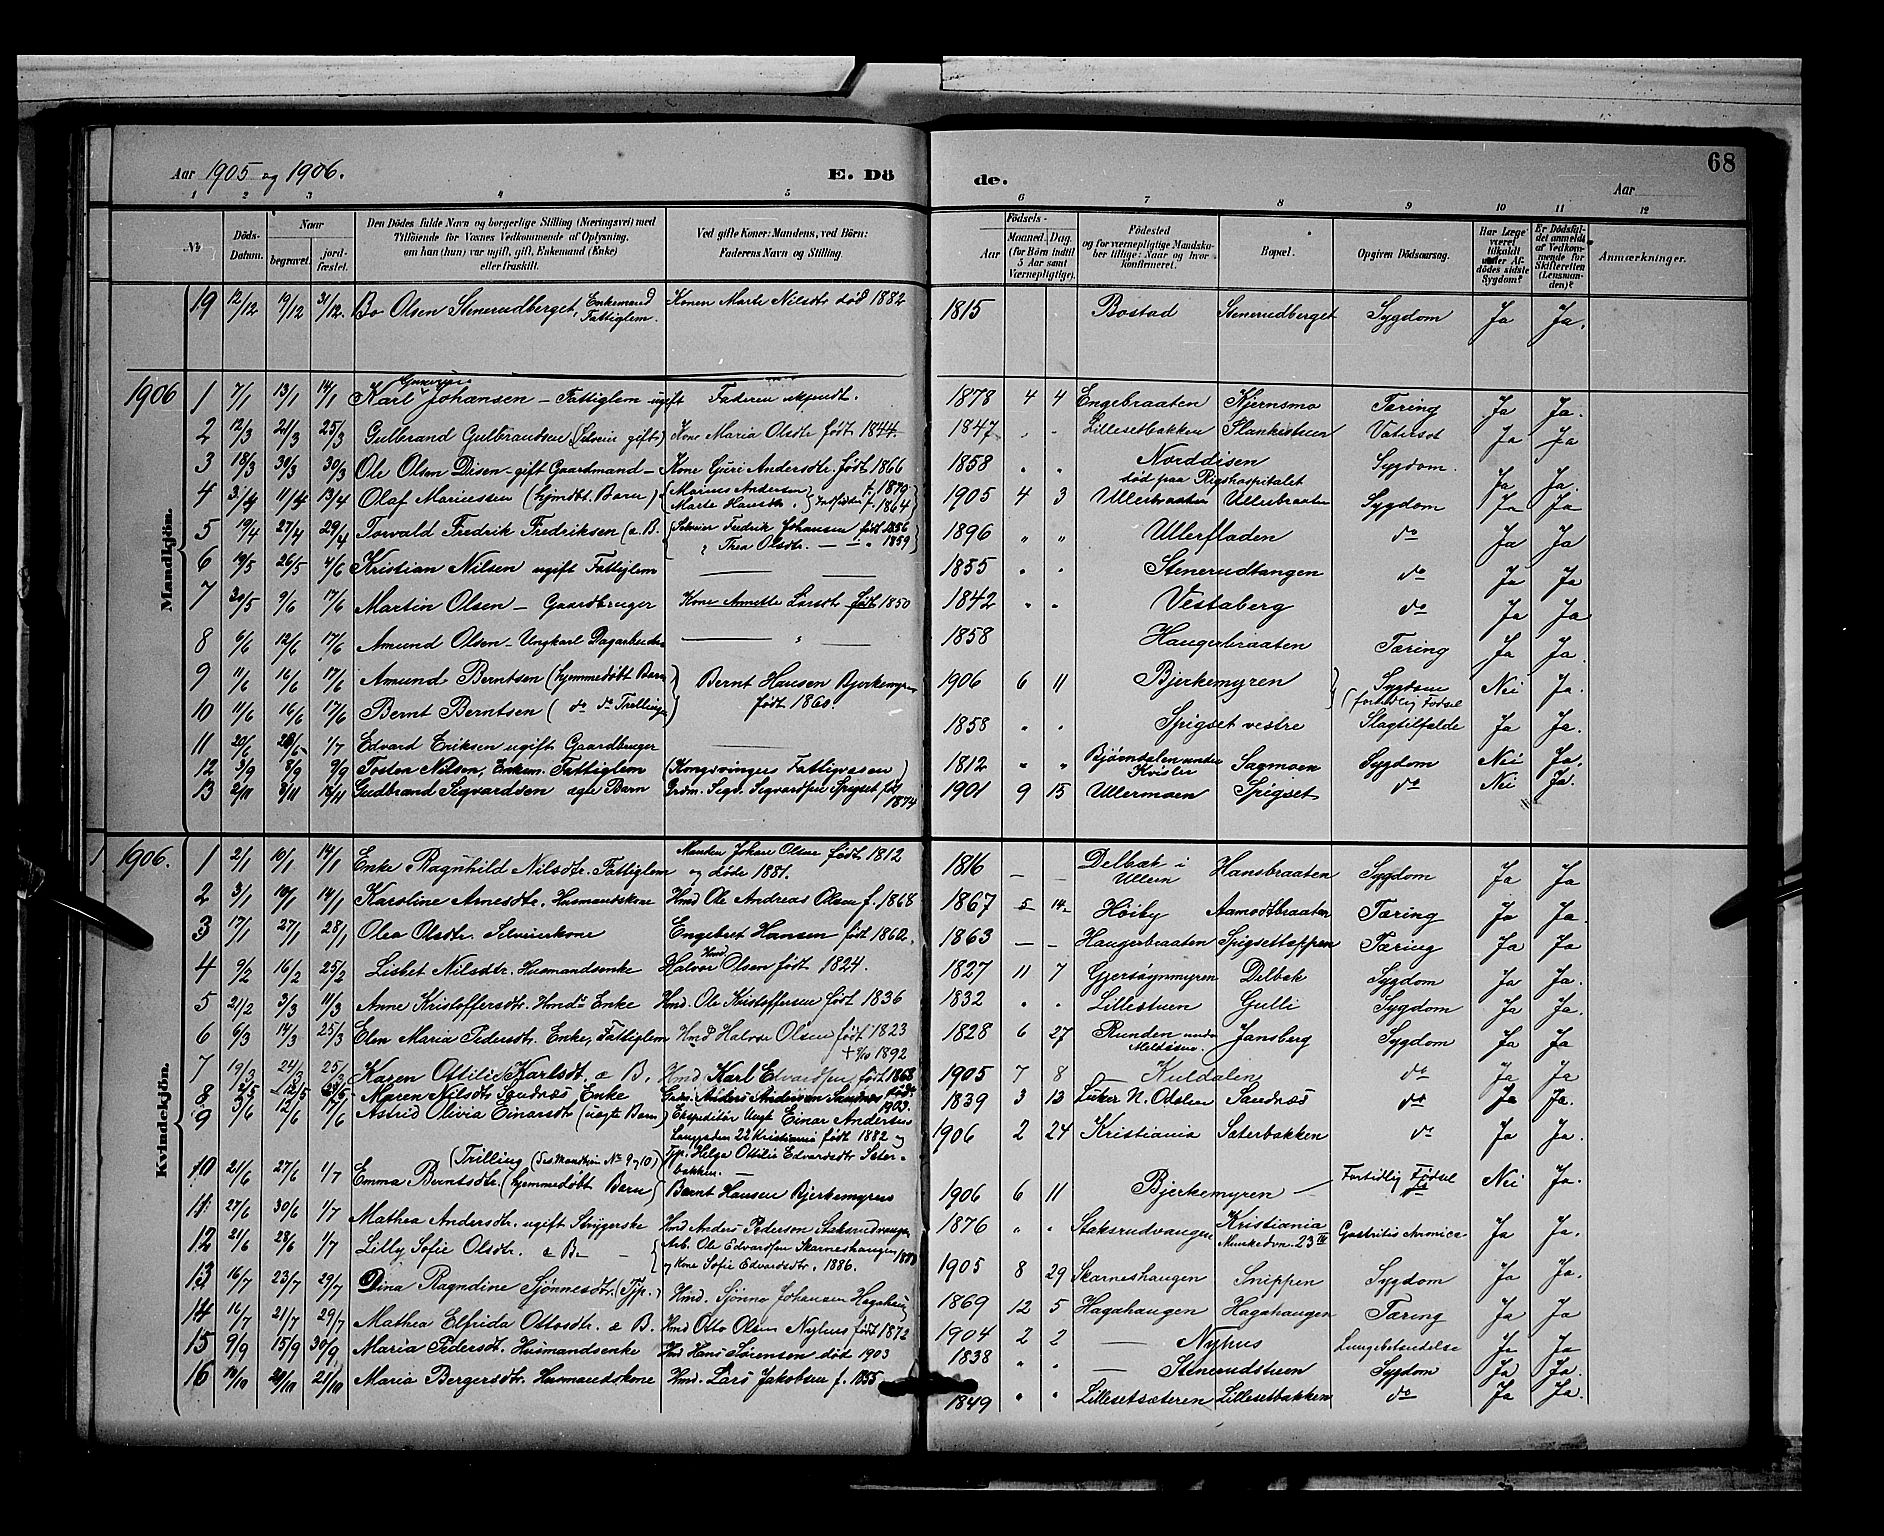 68
Aar 1905 og 1906. E. Dö de. Aar
1 2 3 4 5 6 7 8 9 10 11 12
No Döds-Datum. Naar begravet. jord-fæstet. Den Dödes fulde Navn og borgerlige Stilling (Næringsvei) med Tilföiende for Voxnes Vedkommende af Oplysning, om han (hun) var ugift, gift, Enkemand (Enke) eller fraskilt. Ved gifte Koner: Mandens, ved Börn: Faderens Navn og Stilling. Födsels- Aar Maaned. Dag. (for Börn indtil 5 Aar samt Værnepligtige). Födested og for værnepligtige Mandskaber tillige: Naar og hvor konfirmeret. Bopæl. Opgiven Dödsaarsag. Har Læge været tilkaldt under Afdödes sidste Sygdom? Er Dödsfaldet anmeldt af Vedkommende for Skifteretten (Lensmanden)? Anmærkninger.
Mandkjön.
19 12/12 19/12 31/12. Bo Olsen Stenerudberget, Enkemand Fattiglem. Konen Marte Nilsdtr död 1882 1815 Bostad Stenerudberget Sygdom Ja Ja.
1906 1 7/1 13/1 14/1 Karl Johansen – Fattiglem ugift Faderen ukjendt. 1878 4 4 Engebraaten Kjernsmo Tæring Ja Ja.
2 12/3 21/3 25/3 Gulbrand Gulbrandsen (Selveier gift) Kone Maria Olsdtr født 1844 1847 " " Lillesetbakken Slankistuen Vatersot Ja Ja
3 18/3 30/3 30/3 Ole Olsen Disen – gift Gaardmand – Kone Guri Andersdtr. født 1866 1858 " " Norddisen død paa Rigshospitalet Sygdom. Ja Ja.
4 3/4 11/4 13/4 Olaf Mariussen (hjmdt. Barn) (Marius Andersen f. 1870 Marte Hansdtr. Indsidder f. 1864) 1905 4 3 Ullerbraaten Ullerbraaten Sygdom Ja Ja
5 19/4 27/4 29/4 Torvald Fredrik Fredriksen (æ. B. (Selveier Fredrik Johansen født 1856 " Thea Olsdtr. — — " 1859) 1896 " " Ullerfladen do Ja Ja
6 19/5 26/5 4/6 Kristian Nilsen ugift Fattiglem — — 1855 " " Stenerudtangen do Ja Ja
7 30/5 9/6 17/6 Martin Olsen – Gaardbruger Kone Annette Larsdt født 1850 1842 " " Vestaberg do Ja Ja
8 6/6 12/6 17/6 Amund Olsen – Ungkarl Dagarbeider — " — 1858 Haugerbraaten Tæring Ja Ja.
9 11/6 16/6 17/6 Amund Berntsen (hjemmedøbt Barn) Bernt Hansen Bjerkemyren født 1860. 1906 6 11 Bjerkemyren Sygdom (fortidlig Födsel Nei Ja.
10 11/6 16/6 17/6 Bernt Berntsen (do do Trillinger)
11 20/6 28/6 1/7 Edvard Eriksen ugift Gaardbruger — 1858 " " Spigset vestre Slagtilfælde Ja Ja.
12 3/9 8/9 9/9 Tosten Nilsen, Enkem. Fattiglem (Kongsvingers Fattigvæsen) 1812 " " Bjørndalen under Kvisler Sagmoen Sygdom Nei Ja.
13 2/11 8/11 18/11 Gudbrand Sigvardsen ægte Barn Grdm. Sigv. Sigvardsen Spigset föd 1874 1901 9 15 Ullermoen Spigset do Nei Ja.
Kvindekjön.
1906. 1 2/1 10/1 14/1 Enke Ragnhild Nilsdtr. Fattiglem Manden Johan Olsen født 1812 og døde 1881. 1816 — — Delbæk i Ullern Hansbraaten Sygdom Ja Ja
2 3/1 10/1 14/1 Karoline Arnesdtr. Husmandskone Hmd Ole Andreas Olsen f. 1868 1867 5 14 Høiby Aamodtbraaten Tæring Ja Ja.
3 17/1 27/1 28/1 Olea Olsdtr. Selveierkone Engebret Hansen født 1862. 1863 — — Haugerbraaten Spigsettoppen Tæring Ja Ja
4 9/2 16/2 25/2 Lisbet Nilsdtr. Husmandsenke Hmd. Halvor Olsen født 1824. 1827 11 7 Gjersøynmyren Delbæk Sygdom Ja Ja.
5 21/2 3/3 11/3 Anne Kristoffersdtr. Hmds Enke Hmd. Ole Kristoffersen født 1836 1832 " " Lillestuen Gulli Sygdom Ja Ja.
6 6/3 14/3 25/3 Elen Maria Pedersdtr. Enke, Fattiglem Hmd Halvor Olsen født 1823 + 1892 1828 6 27 Runden under Jansberg Sygdom Ja Ja
7 19/3 24/3 25/3 Karen Ottilie Karlsdt. æ B. Hmd Karl Edvardsen født 1868 1905 7 8 Kuldalen do Ja Ja
8 Maren Nilsdtr Sandnæs Enke Anders Andersen Sandnæs død 1903. 1839 3 13 N. Odalen Sandnæs do Ja Ja.
9 3/6 12/6 17/6 Astrid Olivia Einarsdtr (uægte Barn) Ekspeditör Ungk Einar Andersen Langgaden 22 Kristiania født 1882 og Tjp. Helga Ottilie Edvardsdtr Sæterbakken. 1906 2 24 Kristiania Sæterbakken do Ja Ja.
10 21/6 27/6 1/7 (Trilling (Se Mandkjøn No 9 og 10) Emma Berntsdtr. (hjemmedøbt Barn) Bernt Hansen Bjerkemyren 1906 6 11 Bjerkemyren — Fortidlig Födsel Nei Ja.
11 27/6 30/6 1/7 Mathea Andersdtr. ugift Strygerske Hmd Anders Pederson Staksrudvangen 1876 " " Staksrudvangen Kristiania Munkedvn. 23 IV Gastritis chronica Ja Ja.
12 21/6 28/6 1/7 Lilly Sofie Olsdtr. æ B. – Arb. Ole Edvardsen Skarneshaugen og Kone Sofie Edvardsdtr. " 1886. 1905 8 29 Skarneshaugen Snippen Sygdom Ja Ja.
13 16/7 23/7 29/7 Dina Ragndine Sjønnesdtr. (Tjp.) Hmd. Sjønne Johansen Hagahaug 1869 12 5 Hagahaugen Hagahaugen Tæring Ja Ja
14 16/7 21/7 29/7 Mathea Elfrida Ottosdtr. æ B. Hmd Otto Olsen Nyhus født 1872 1904 2 2 — Nyhus Lungebetændelse Ja Ja
15 9/9 15/9 30/9 Maria Pedersdtr. Husmandsenke Hmd Hans Sørensen död 1903 1838 " " — Stenerudstuen Sygdom Ja Ja.
16 14/10 20/10 21/10 Maria Bergersdtr. Husmandskone Hmd. Lars Jakobsen f. 1855 1849 " " Lillesetsæteren Lillesetbakken do Ja Ja.